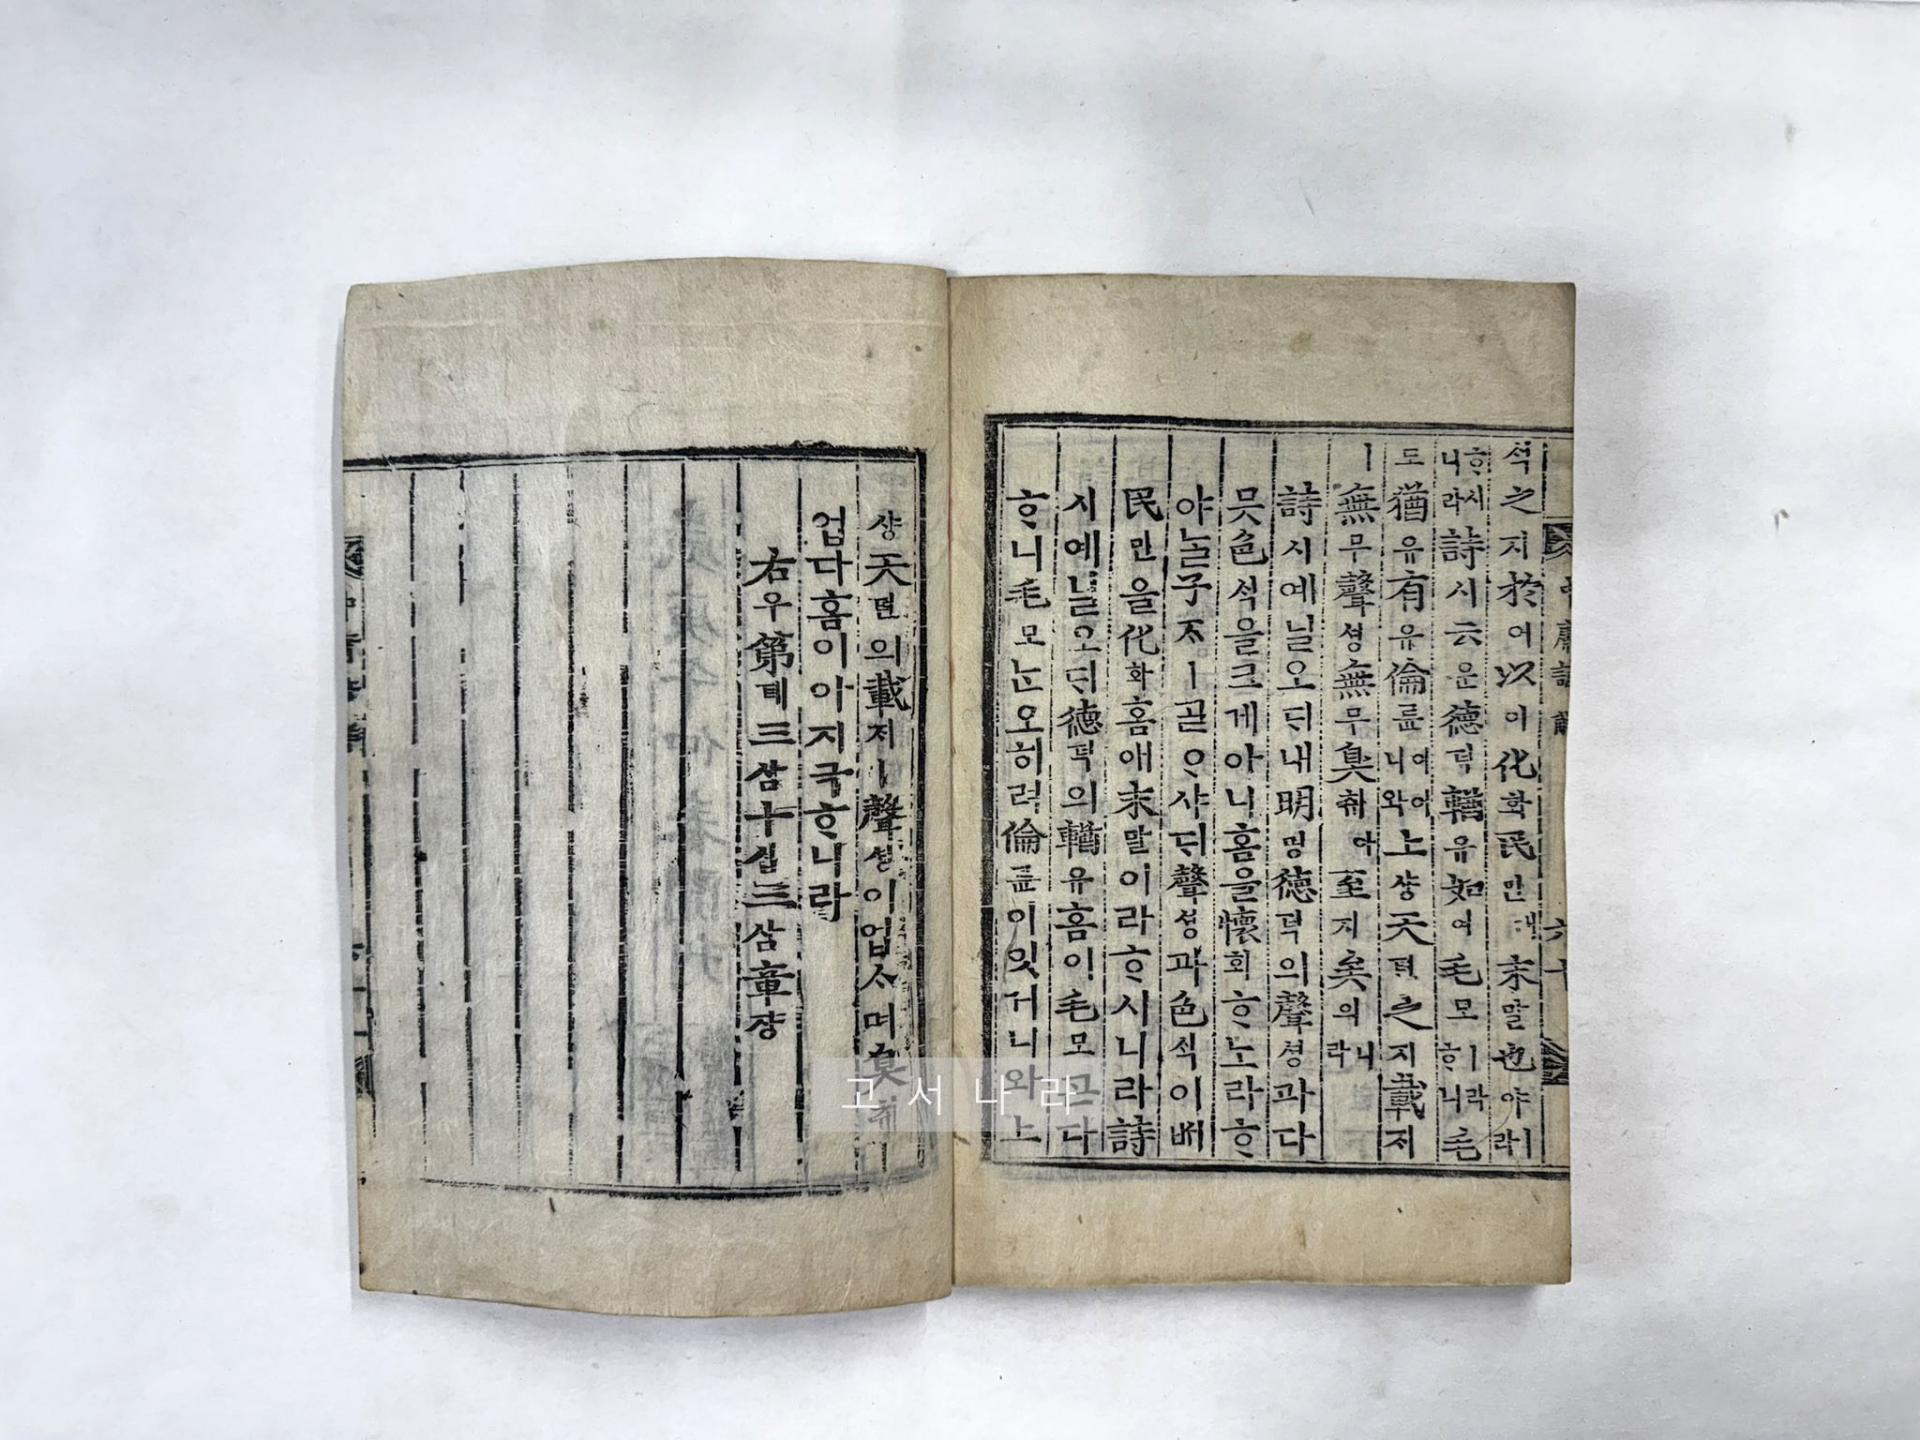 中庸諺解 六十
석之지於어以이化화民민애末말也야라
ᄒᆞ시니라詩시云운德덕輶유如여毛모ㅣ라ᄒᆞ니毛모
도猶유有유倫륜이어니와上샹天텬之지載ᄌᆡ
ㅣ無무聲셩無무臭취아至지矣의니라
詩시예닐오ᄃᆡ내明명德덕의聲셩과다
ᄆᆞᆺ色ᄉᆡᆨ을크게아니홈을懷회ᄒᆞ노라ᄒᆞ
야ᄂᆞᆯ子ᄌᆞㅣᄀᆞᆯᄋᆞ샤ᄃᆡ聲셩과色ᄉᆡᆨ이ᄡᅥ
民민을化화홈애末말이라ᄒᆞ시니라詩
시예닐오ᄃᆡ德덕의輶유홈이毛모ᄀᆞᆮ다
ᄒᆞ니毛모ᄂᆞᆫ오히려倫륜이잇거니와上
샹天텬의載ᄌᆡㅣ聲셩이업ᄉᆞ며臭취ㅣ
업다홈이아지극ᄒᆞ니라
右우第뎨三삼十십三삼章쟝
고서나라